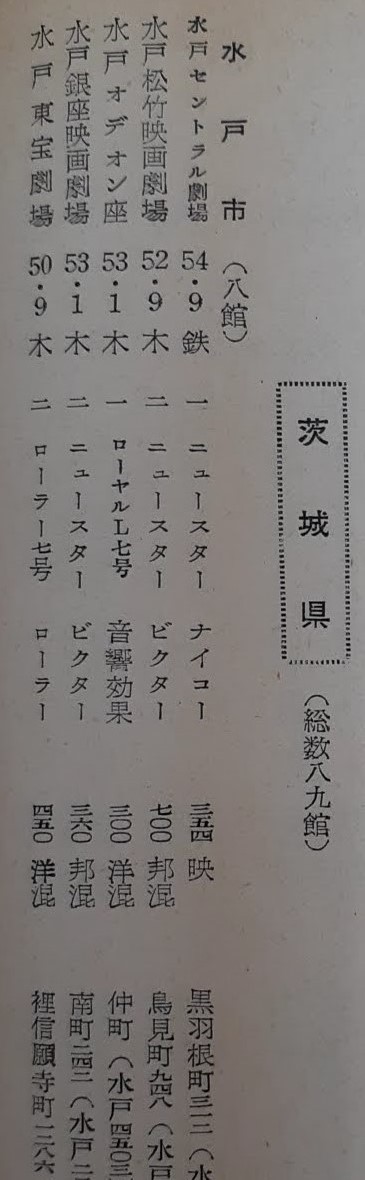 茨城県（総数八九館）
水戸市（八館）
水戸セントラル劇場 54・9 鉄 一 ニュースター ナイコー 三五四 映 黒羽根町三一二（水
水戸松竹映画劇場 52・9 木 二 ニュースター ビクター 七〇〇 邦混 鳥見町九四八（水戸
水戸オデオン座 53・1 木 一 ローヤルL七号 音響効果 三〇〇 洋混 仲町（水戸四五〇三
水戸銀座映画劇場 53・1 木 二 ニュースター ビクター 三六〇 邦混 南町二四二（水戸二
水戸東宝劇場 50・9 木 二 ローラー七号 ローラー 四五〇 洋混 裡信願寺町一二八六